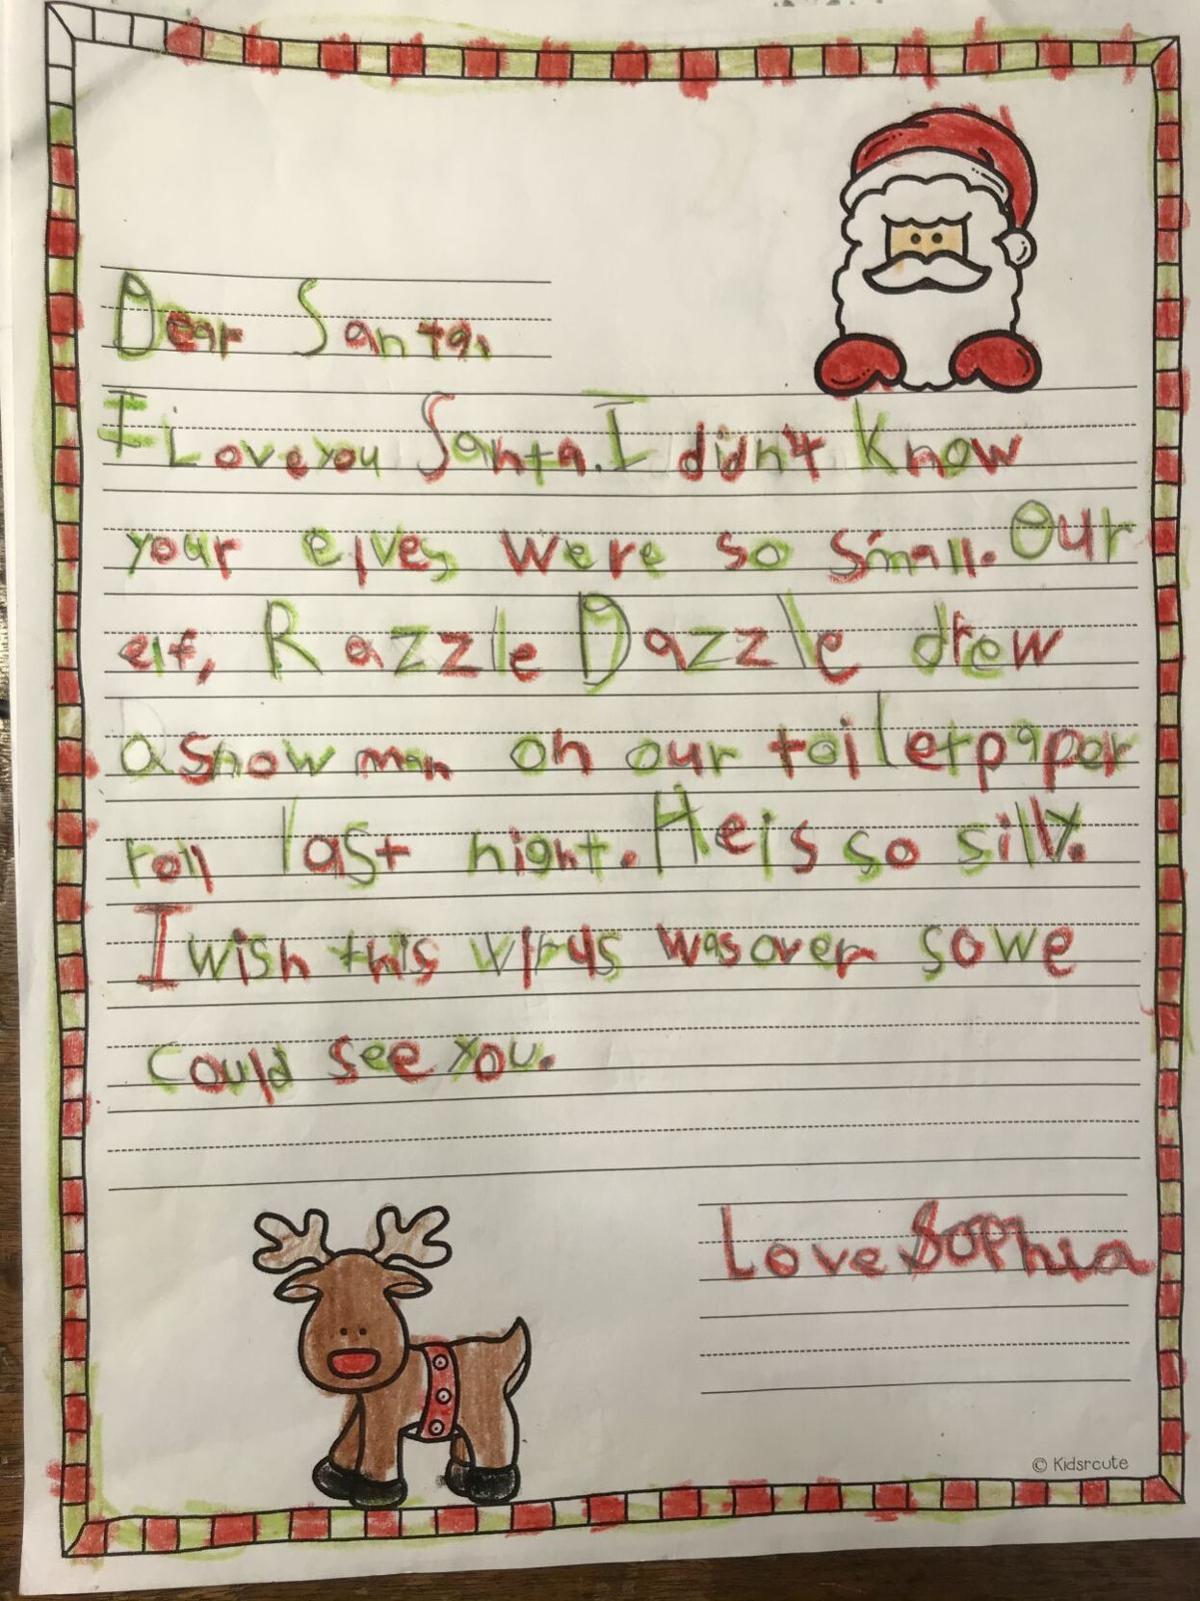 Dear Santa,
I Love you Santa. I didn't know
your elves were so small. Our
elf, Razzle Dazzle drew
a snow man on our toiletpaper
roll last night. He is so silly.
I wish this virus was over so we
could see you.
Love Sophia
© Kidsrcute